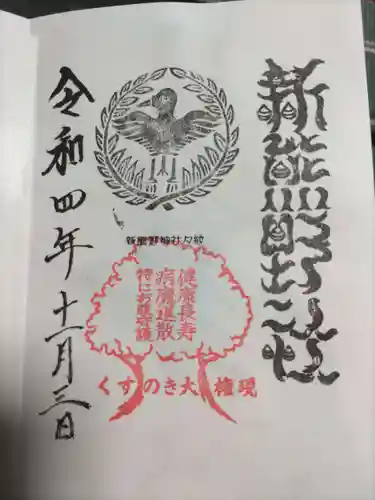 新熊野神社
新熊野神社夕紋
健康長寿
病魔退散
特にお腹守護
くすのき大権現
令和四年十一月三日